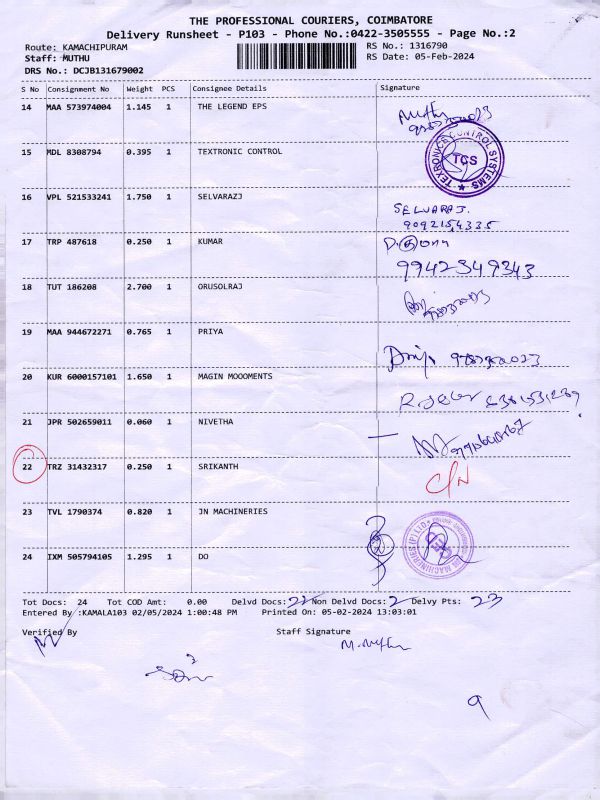 THE PROFESSIONAL COURIERS, COIMBATORE
Delivery Runsheet - P103 - Phone No.:0422-3505555 - Page No.:2
Route: KAMACHIPURAM
RS No.: 1316790
Staff: MUTHU
RS Date: 05-Feb-2024
DRS No.: DCJB131679002
S No Consignment No Weight PCS Consignee Details Signature
14 MAA 573974004 1.145 1 THE LEGEND EPS
15 MDL 8308794 0.395 1 TEXTRONIC CONTROL
TEXTRONICS CONTROL SYSTEMS
TCS
16 VPL 521533241 1.750 1 SELVARAZJ
SELVARAJ.
9092154335
17 TRP 487618 0.250 1 KUMAR
9942349343
18 TUT 186208 2.700 1 ORUSOLRAJ
19 MAA 944672271 0.765 1 PRIYA
20 KUR 6000157101 1.650 1 MAGIN MOOOMENTS
21 JPR 502659011 0.060 1 NIVETHA
22 TRZ 31432317 0.250 1 SRIKANTH
C/N
23 TVL 1790374 0.820 1 JN MACHINERIES
MACHINERIES (P) LTD
24 IXM 505794105 1.295 1 DO
Tot Docs: 24 Tot COD Amt: 0.00 Delvd Docs: 22 Non Delvd Docs: 2 Delvy Pts: 23
Entered By :KAMALA103 02/05/2024 1:00:48 PM Printed On: 05-02-2024 13:03:01
Verified By Staff Signature
M. Muthu
9